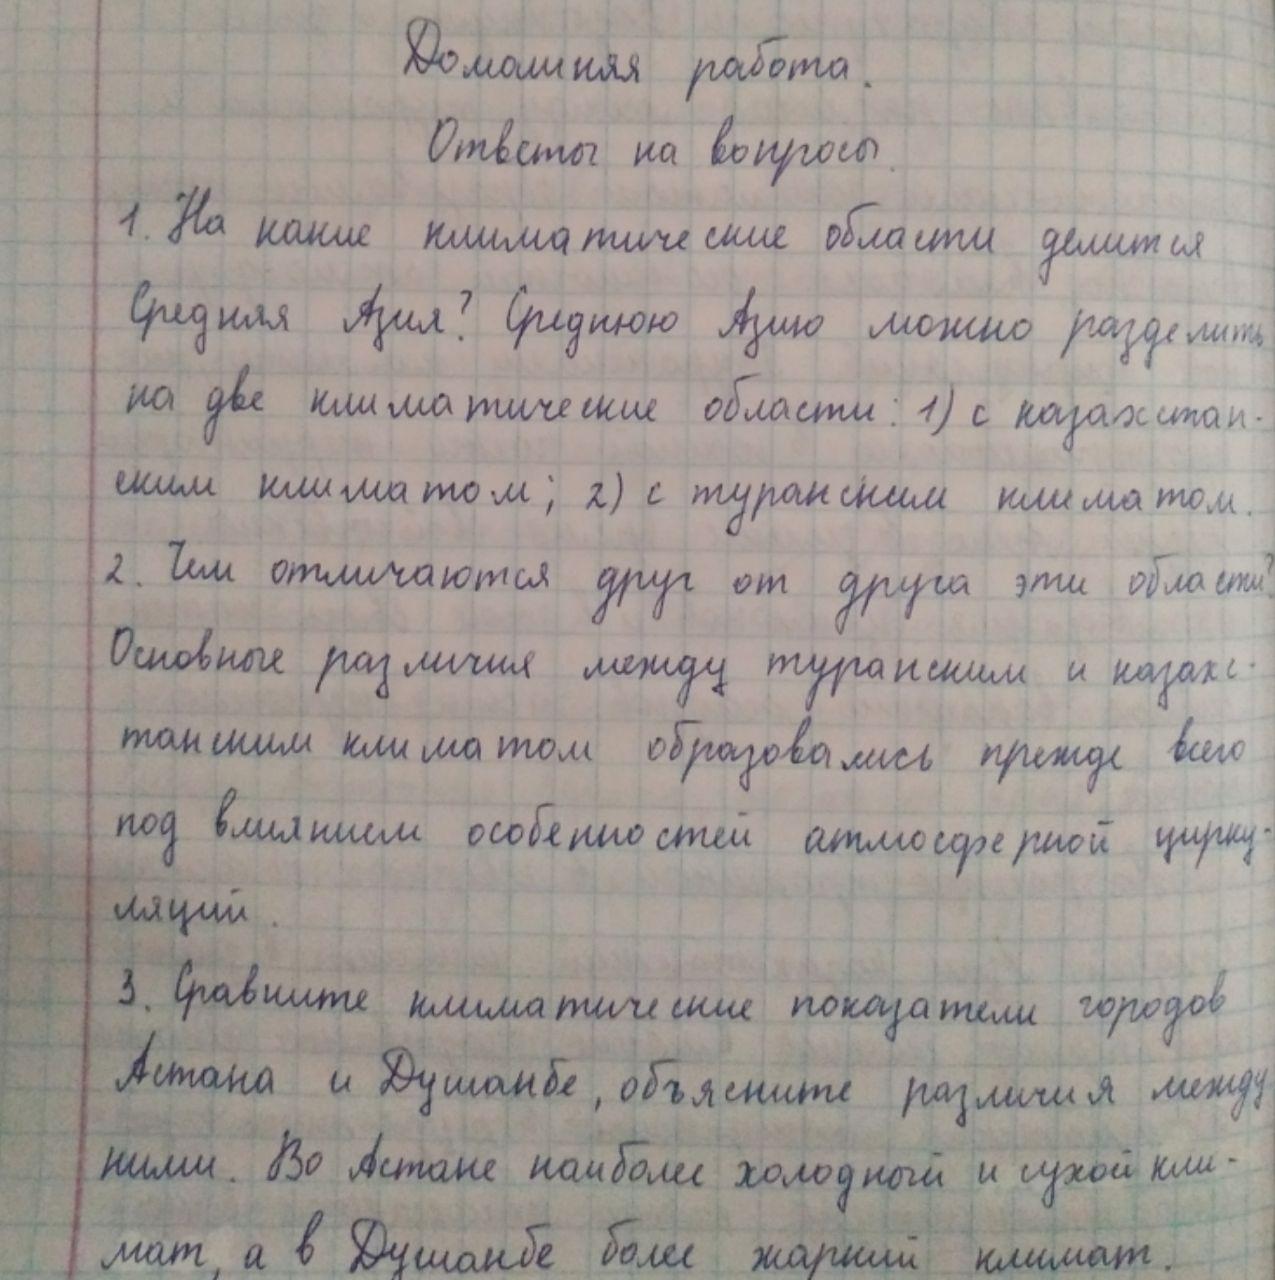 Домашняя работа.
Ответы на вопросы.
1. На какие климатические области делится
Средняя Азия? Среднюю Азию можно разделить
на две климатические области: 1) с казахстан-
ским климатом; 2) с туранским климатом.
2. Чем отличаются друг от друга эти области?
Основные различия между туранским и казахс-
танским климатом образовались прежде всего
под влиянием особенностей атмосферной цирку-
ляций.
3. Сравните климатические показатели городов
Астана и Душанбе, объясните различия между
ними. Во Астане наиболее холодный и сухой кли-
мат, а в Душанбе более жаркий климат.